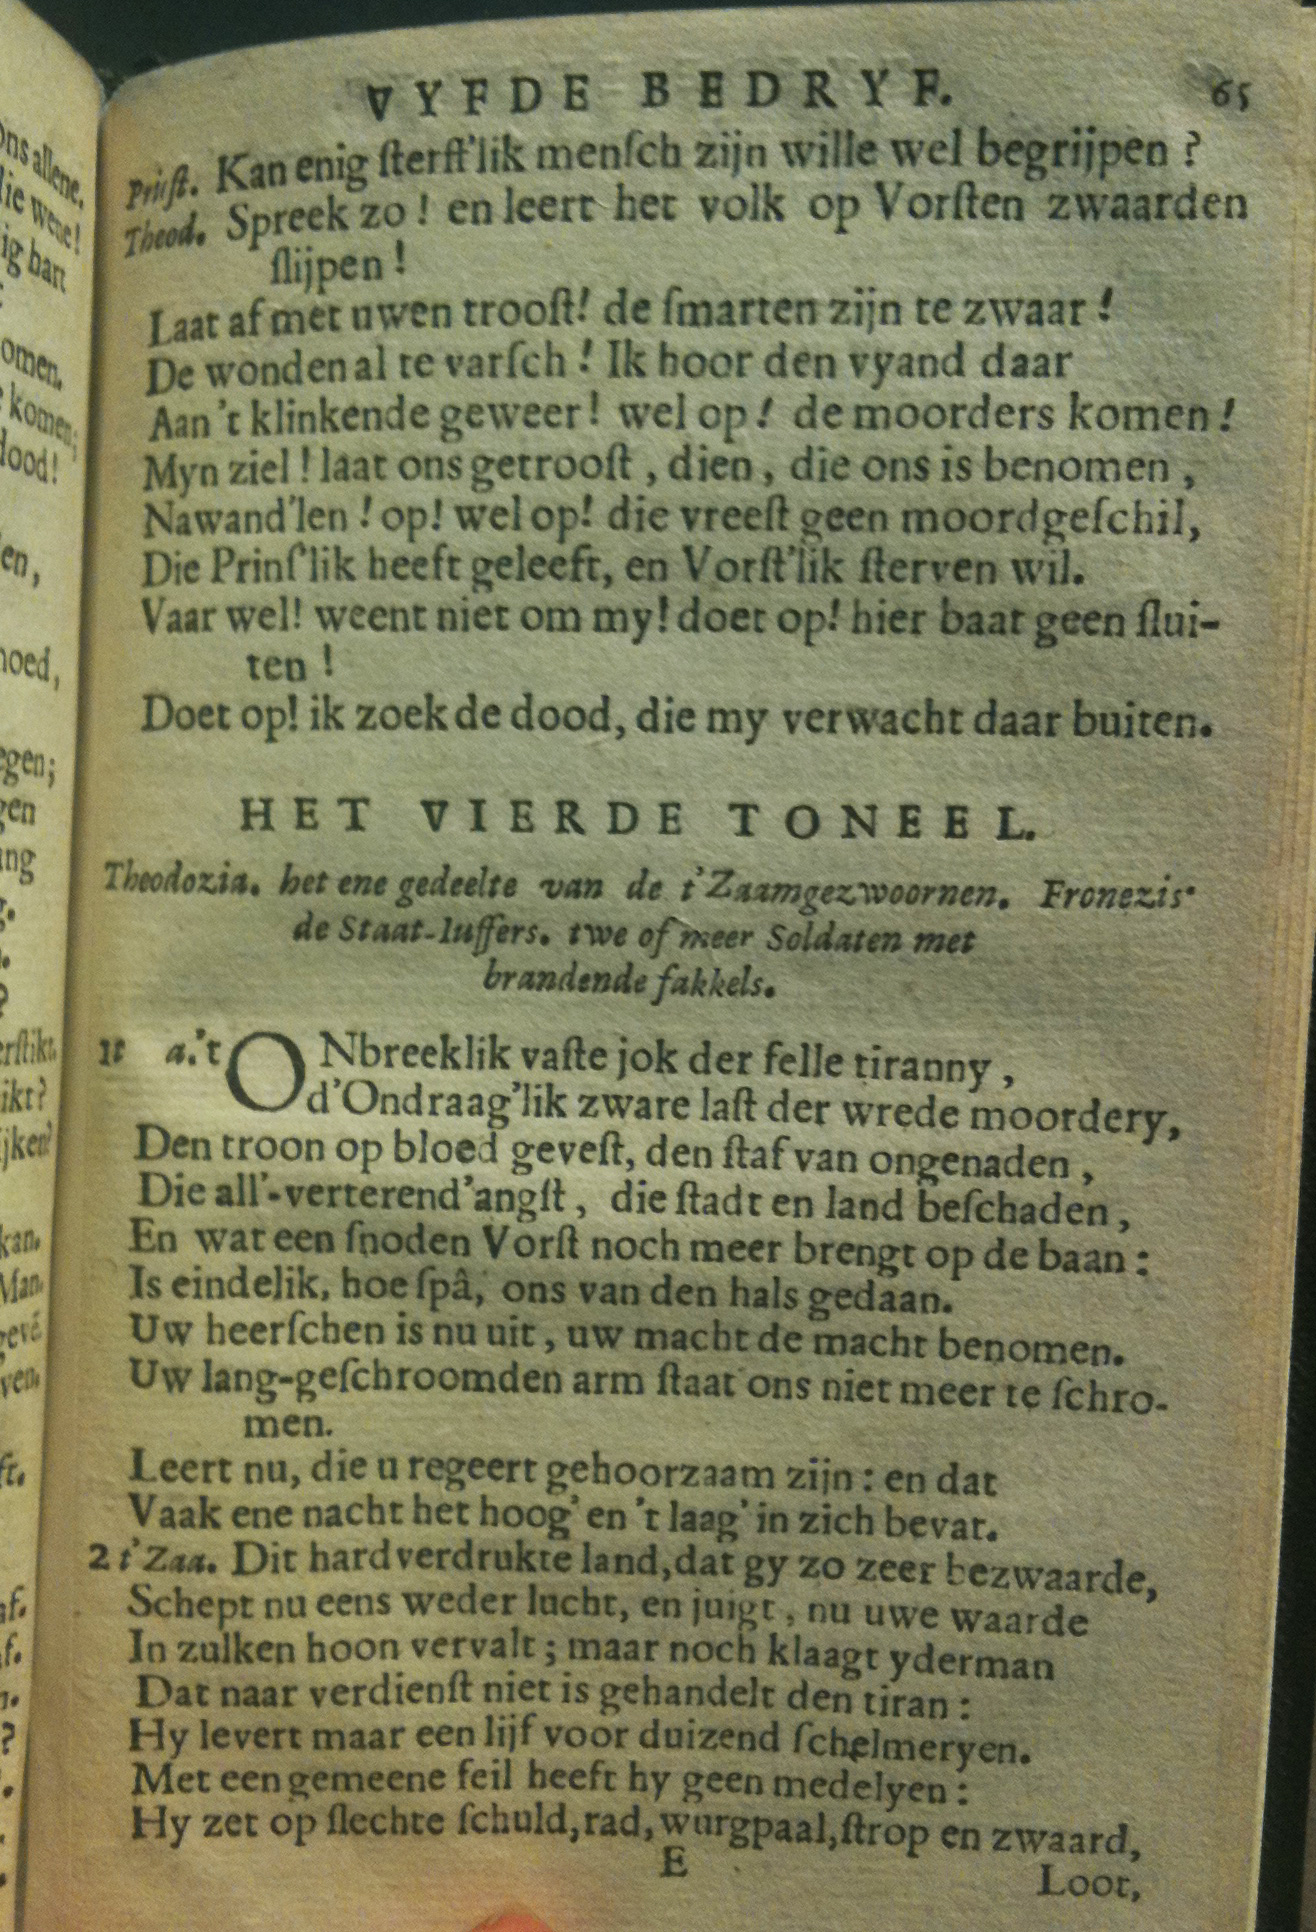 ons allene.
die wene!
ig hart
omen.
komen;
dood!
en,
noed,
egen;
gen
ing
g.
?
erſtikt.
ikt?
ijken?
kan.
Man.
gevé.
ven.
ft.
af.
f.
n.
?
VYFDE BEDRYF. 65
Prieſt. Kan enig ſterft'lik menſch zijn wille wel begrijpen?
Theod. Spreek zo! en leert het volk op Vorſten zwaarden
ſlijpen!
Laat af met uwen trooſt! de ſmarten zijn te zwaar!
De wonden al te varſch! Ik hoor den vyand daar
Aan 't klinkende geweer! wel op! de moorders komen!
Myn ziel! laat ons getrooſt, dien, die ons is benomen,
Nawand'len! op! wel op! die vreeſt geen moordgeſchil,
Die Prinſ'lik heeft geleeft, en Vorſt'lik ſterven wil.
Vaar wel! weent niet om my! doet op! hier baat geen ſlui-
ten!
Doet op! ik zoek de dood, die my verwacht daar buiten.
HET VIERDE TONEEL.
Theodozia. het ene gedeelte van de t'Zaamgezwoornen. Fronezis.
de Staat-Iuffers. twe of meer Soldaten met
brandende fakkels.
1t a.'t ONbreeklik vaſte jok der felle tiranny,
d'Ondraag'lik zware laſt der wrede moordery,
Den troon op bloed geveſt, den ſtaf van ongenaden,
Die all'-verterend'angſt, die ſtadt en land beſchaden,
En wat een ſnoden Vorſt noch meer brengt op de baan:
Is eindelik, hoe ſpâ, ons van den hals gedaan.
Uw heerſchen is nu uit, uw macht de macht benomen.
Uw lang-geſchroomden arm ſtaat ons niet meer te ſchro-
men.
Leert nu, die u regeert gehoorzaam zijn: en dat
Vaak ene nacht het hoog' en 't laag' in zich bevat.
2 t'Zaa. Dit hard verdrukte land, dat gy zo zeer bezwaarde,
Schept nu eens weder lucht, en juigt, nu uwe waarde
In zulken hoon vervalt; maar noch klaagt yderman
Dat naar verdienſt niet is gehandelt den tiran:
Hy levert maar een lijf voor duizend ſchelmeryen.
Met een gemeene feil heeft hy geen medelyen:
Hy zet op ſlechte ſchuld, rad, wurgpaal, ſtrop en zwaard,
E
Loot,